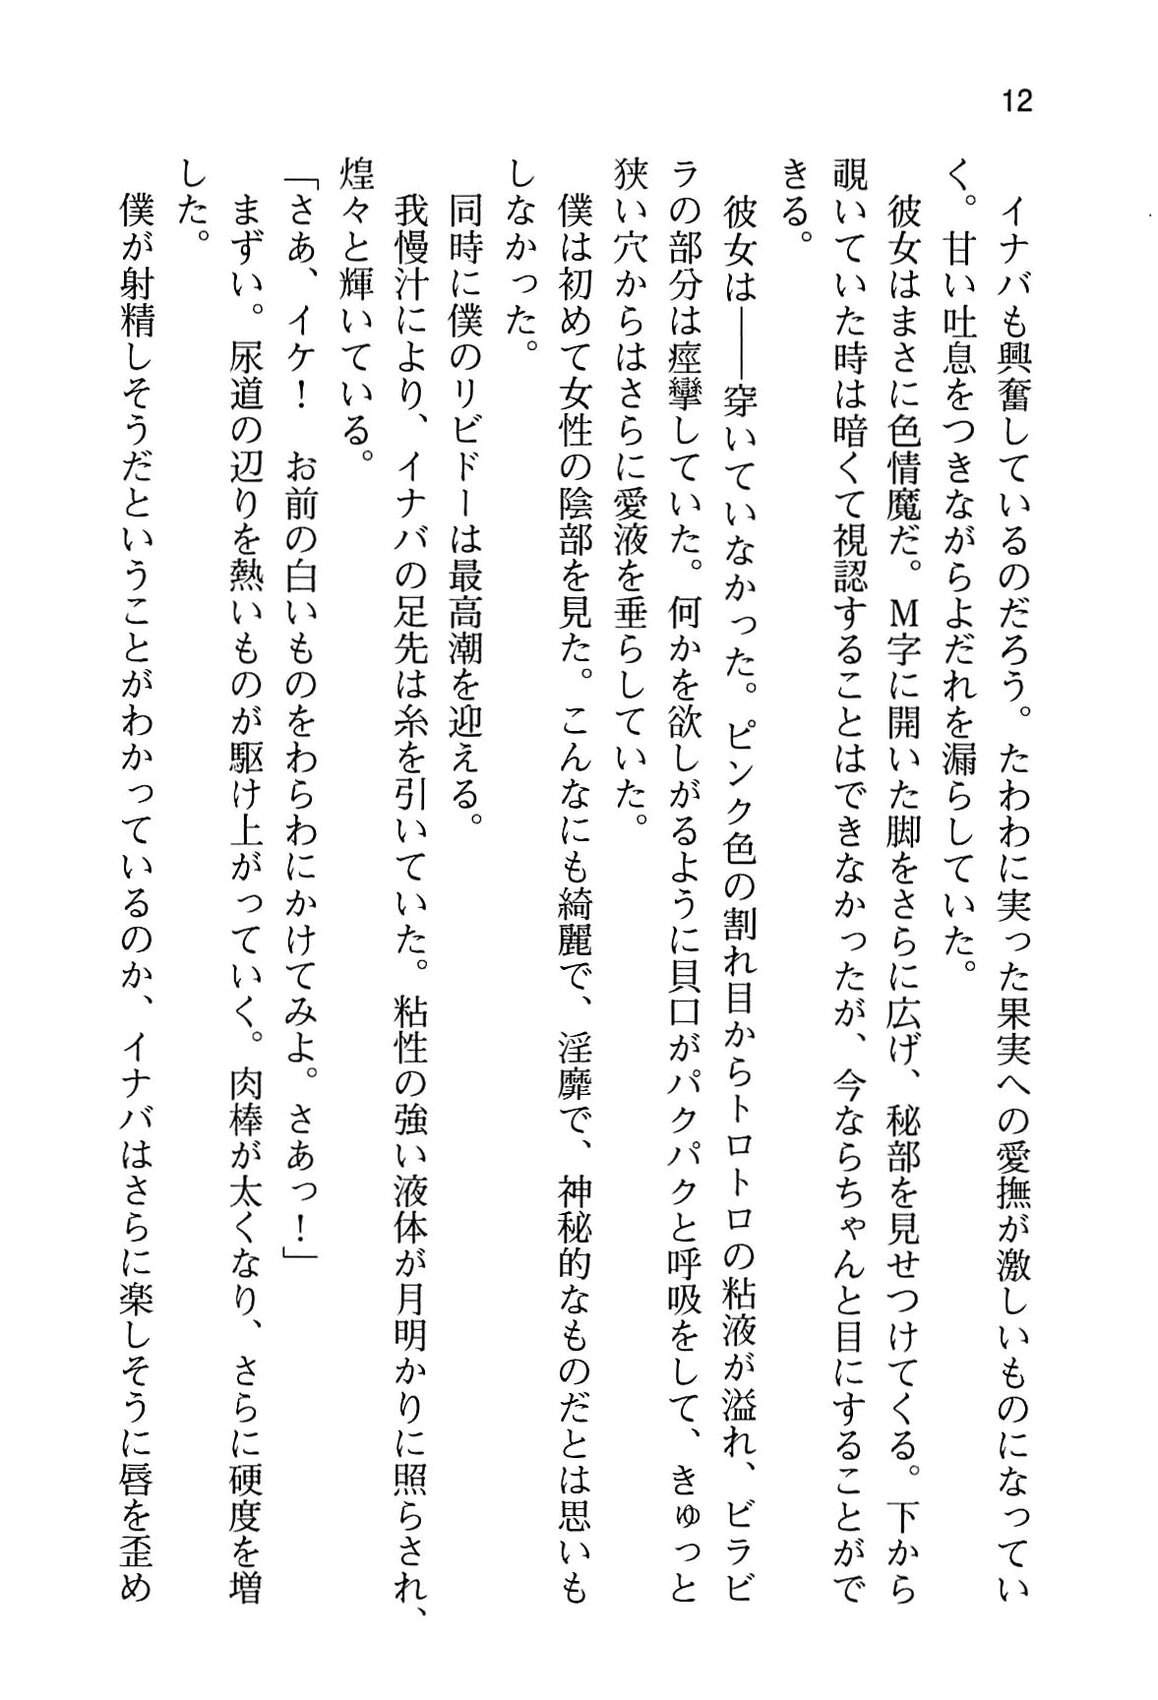 12
　イナバも興奮しているのだろう。たわわに実った果実への愛撫が激しいものになってい
く。甘い吐息をつきながらよだれを漏らしていた。
　彼女はまさに色情魔だ。Ｍ字に開いた脚をさらに広げ、秘部を見せつけてくる。下から
覗いていた時は暗くて視認することはできなかったが、今ならちゃんと目にすることがで
きる。
　彼女は――穿いていなかった。ピンク色の割れ目からトロトロの粘液が溢れ、ビラビ
ラの部分は痙攣していた。何かを欲しがるように貝口がパクパクと呼吸をして、きゅっと
狭い穴からはさらに愛液を垂らしていた。
　僕は初めて女性の陰部を見た。こんなにも綺麗で、淫靡で、神秘的なものだとは思いも
しなかった。
　同時に僕のリビドーは最高潮を迎える。
　我慢汁により、イナバの足先は糸を引いていた。粘性の強い液体が月明かりに照らされ、
煌々と輝いている。
「さあ、イケ！　お前の白いものをわらわにかけてみよ。さあっ！」
　まずい。尿道の辺りを熱いものが駆け上がっていく。肉棒が太くなり、さらに硬度を増
した。
　僕が射精しそうだということがわかっているのか、イナバはさらに楽しそうに唇を歪め